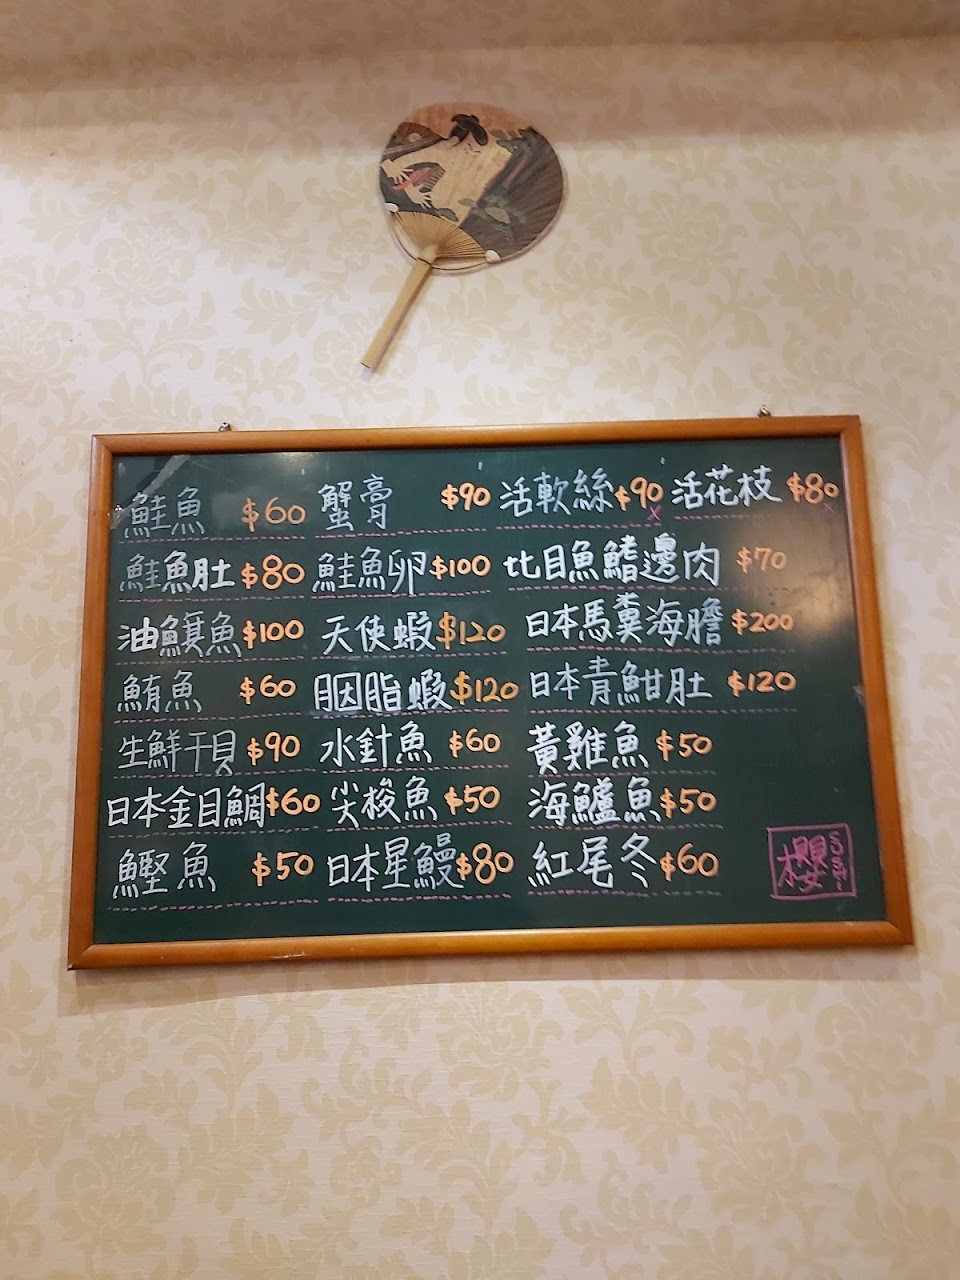 鮭魚 $60 蟹膏 $90 活軟絲 $90 x 活花枝 $80 x
鮭魚肚 $80 鮭魚卵 $100 比目魚鰭邊肉 $70
油鯕魚 $100 天使蝦 $120 日本馬糞海膽 $200
鮪魚 $60 胭脂蝦 $120 日本青魽肚 $120
生鮮干貝 $90 水針魚 $60 黃雞魚 $50
日本金目鯛 $60 尖梭魚 $50 海鱸魚 $50
鰹魚 $50 日本星鰻 $80 紅尾冬 $60
櫻